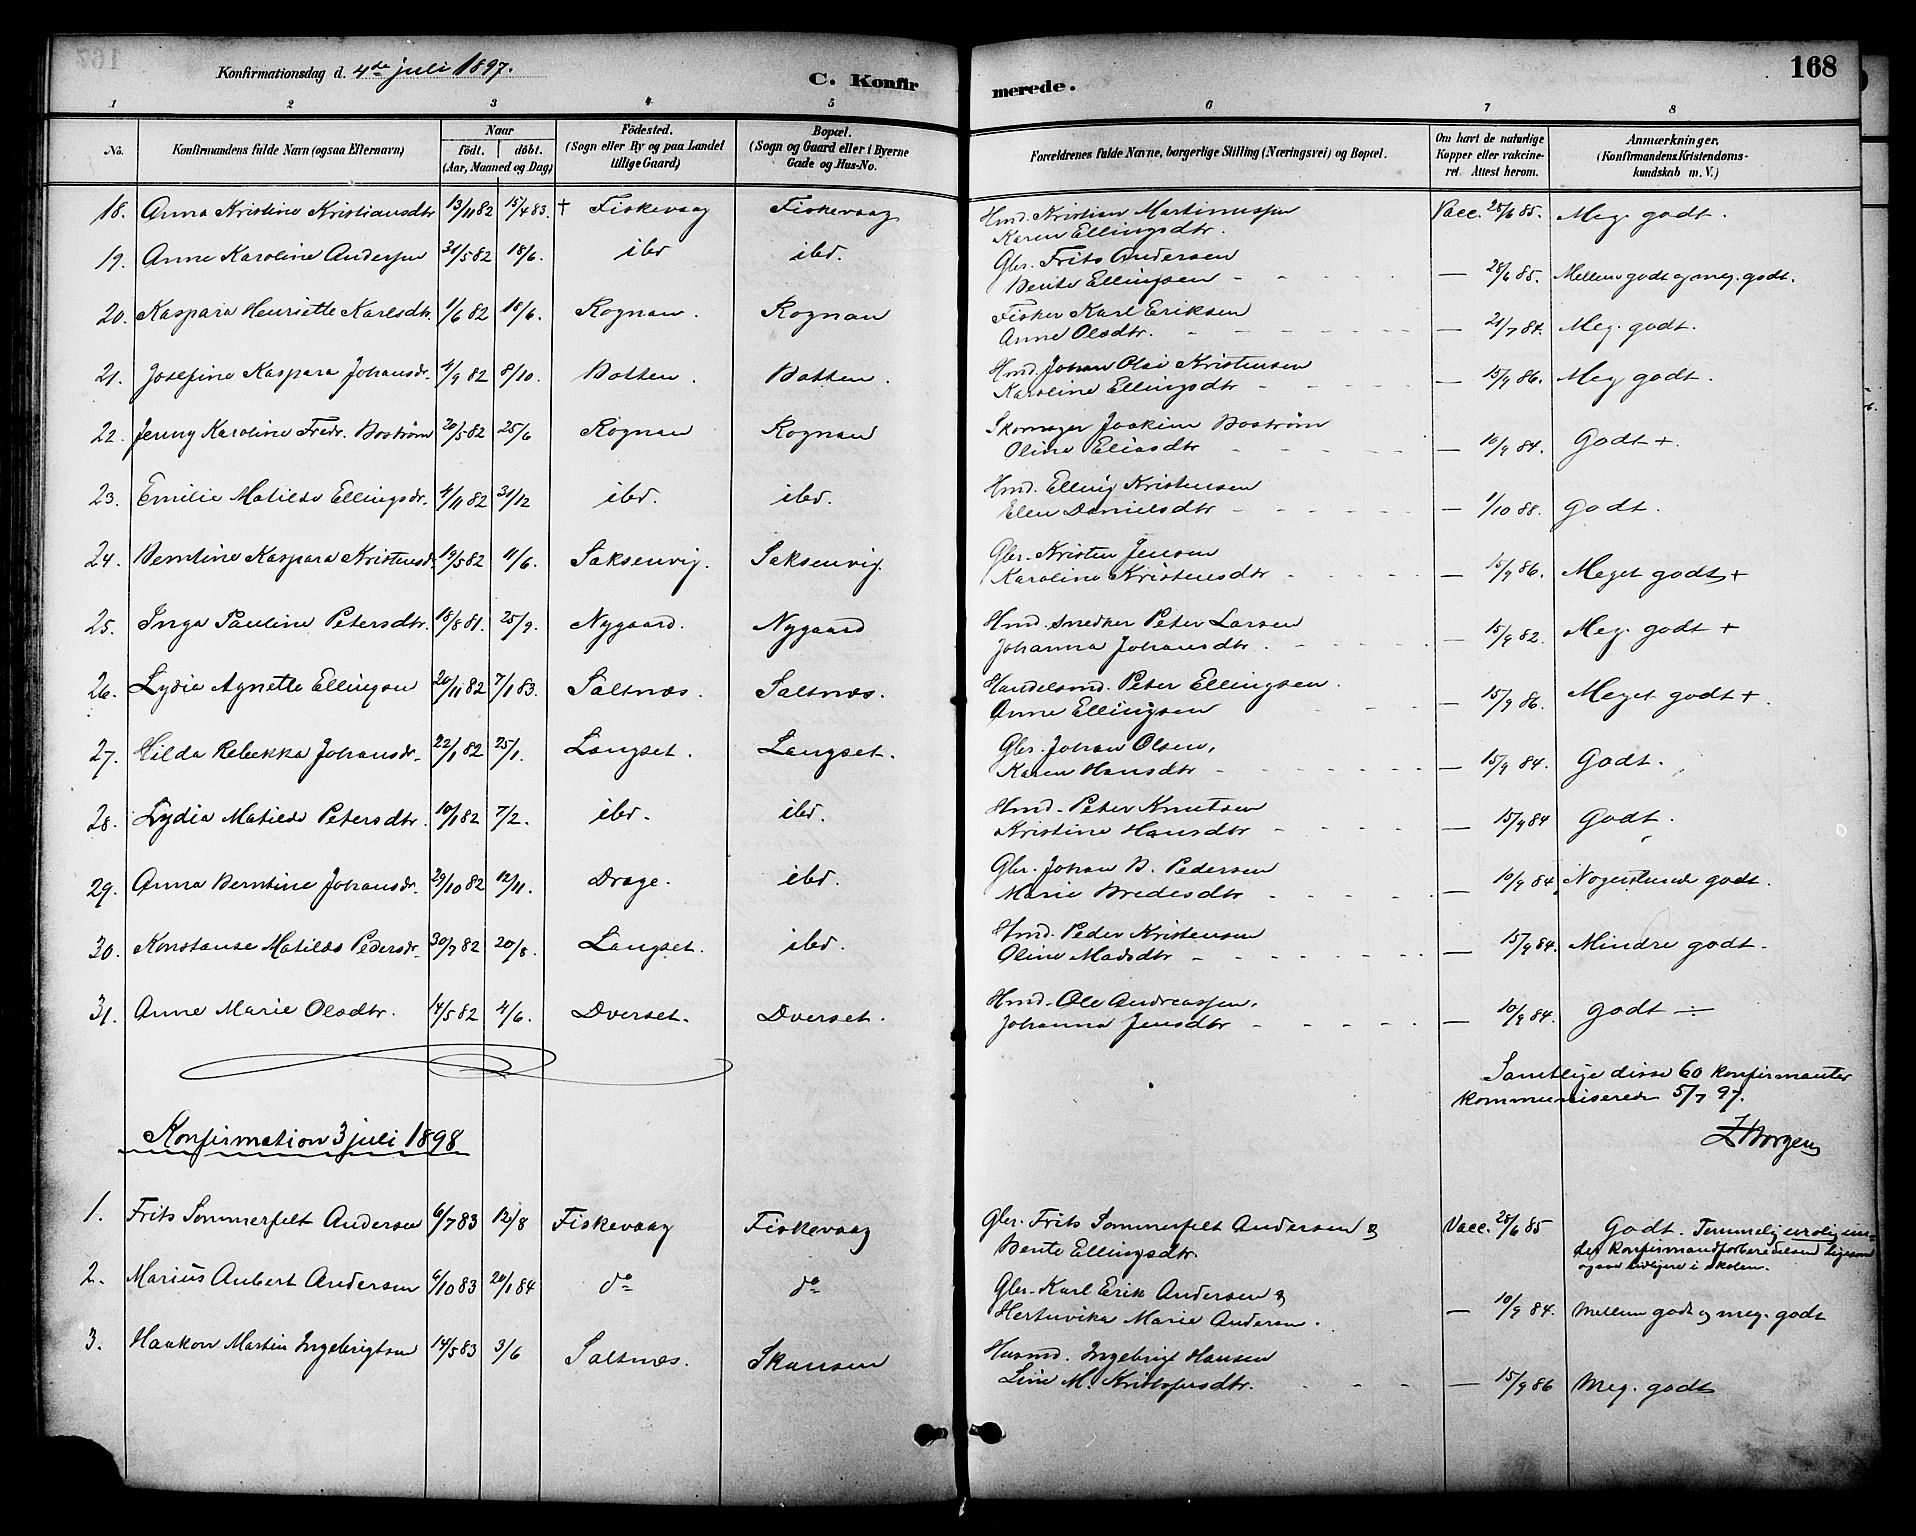 Konfirmationsdag d. 4de juli 1897.
C. Konfirmerede.
168
1 2 3 4 5 6 7 8
No. Konfirmandens fulde Navn (ogsaa Efternavn) Naar födt. döbt. (Aar, Maaned og Dag) Födested. (Sogn eller By og paa Landet tillige Gaard) Bopæl. (Sogn og Gaard eller i Byerne Gade og Hus-No. Forældrenes fulde Navne, borgerlige Stilling (Næringsvei) og Bopæl. Om havt de naturlige Kopper eller vakcineret. Attest herom. Anmærkninger. (Konfirmandens Kristendomskundskab m. V.)
18. Anna Kristine Kristiansdtr 13/11 82 15/4 83. + Fiskevaag Fiskevaag Hmd. Kristian Martinussen Vacc. 28/6 85. Meg. godt.
Karen Ellingsdtr.
19. Anne Karoline Andersen 31/5 82 18/6. ibd ibd. Gbr. Frits Andersen
Bente Ellingsen — 28/6 85. Mellem godt og meg. godt.
20. Kaspara Henriette Karlsdtr. 1/6 82 18/6. Rognan. Rognan Fisker Karl Eriksen
Anne Olsdtr. — 21/7 84. Meg. godt.
21. Josefine Kaspara Johansdr. 4/9 82 8/10. Botten. Botten. Hmd. Johan Olai Kristensen
Karoline Ellingsdtr — 15/9 86. Meg. godt.
22. Jenny Karoline Fredr. Boström 20/5 82 25/6 Rognan Rognan Skomager Joakim Boström
Oline Eliasdtr — 10/9 84. Godt +.
23. Emilie Matilde Ellingsdr. 4/11 82 31/12 ibd. ibd. Hmd. Elling Kristensen
Elen Danielsdtr — 1/10 88. godt.
24. Berntine Kaspara Kristensdr. 19/5 82 11/6. Saksenvig. Saksenvig. Gbr. Kristen Jensen
Karoline Kristensdtr — 15/9 86. Meget godt +
25. Inga Pauline Petersdtr. 18/8 81. 25/9. Nygaard. Nygaard Hmd. snedker Peter Larsen
Johanna Johansdtr. — 15/9 82. Meg. godt +
26. Lydia Agnette Ellingsen 20/11 82 7/1 83. Saltnæs. Saltnæs. Handelsmd. Peter Ellingsen.
Anne Ellingsen — 15/9 86. Meget godt +.
27. Hilda Rebekka Johansdr. 22/1 82 25/1. Langset. Langset. Gbr. Johan Olsen,
Karen Hansdtr — 15/9 84. Godt.
28. Lydia Matilde Petersdtr. 10/1 82 7/2. ibd. ibd. Hmd. Peter Knutsen
Kristine Hansdtr — 15/9 84 Godt.
29. Anna Berntine Johansdr. 29/10 82 12/11. Drage. ibd. Gbr. Johan B. Pedersen
Marie Bredesdtr — 10/9 84. Nogenlunde godt.
30. Konstanse Matilde Pedersdr. 30/7 82 20/8. Langset. ibd. Hmd. Peder Kristensen
Oline Madsdtr — 15/9 84. Mindre godt.
31. Anne Marie Olsdtr. 14/5 82 4/6. Dverset. Dverset. Hmd. Ole Andreassen.
Johanna Jensdtr — 10/9 84. godt ÷
Samtlige disse 60 konfirmanter
kommuniserede 5/7 97.
Borgen
Konfirmation 3 juli 1898
1. Frits Sommerfelt Andersen 6/7 83 12/8 Fiskevaag Fiskevaag Gbr. Frits Sommerfelt Andersen & Vacc. 28/6 85 Godt. Temmelig urolig un-
Bente Ellingsdtr. der konfirmandforberedelsen ligesom
ogsaa tidligere i skolen.
2. Marius Aubert Andersen 6/10 83 20/1 84 do do Gbr. Karl Erik Andersen &
Hertevika Marie Andersen. — 10/9 84. Mellem godt og meg. godt
3. Haakon Martin Ingebrigtsen 14/5 83 3/6 Saltnæs. Skansen Husmd. Ingebrigt Hansen
Line M. Kristofersdtr. — 15/9 86 Meg. godt